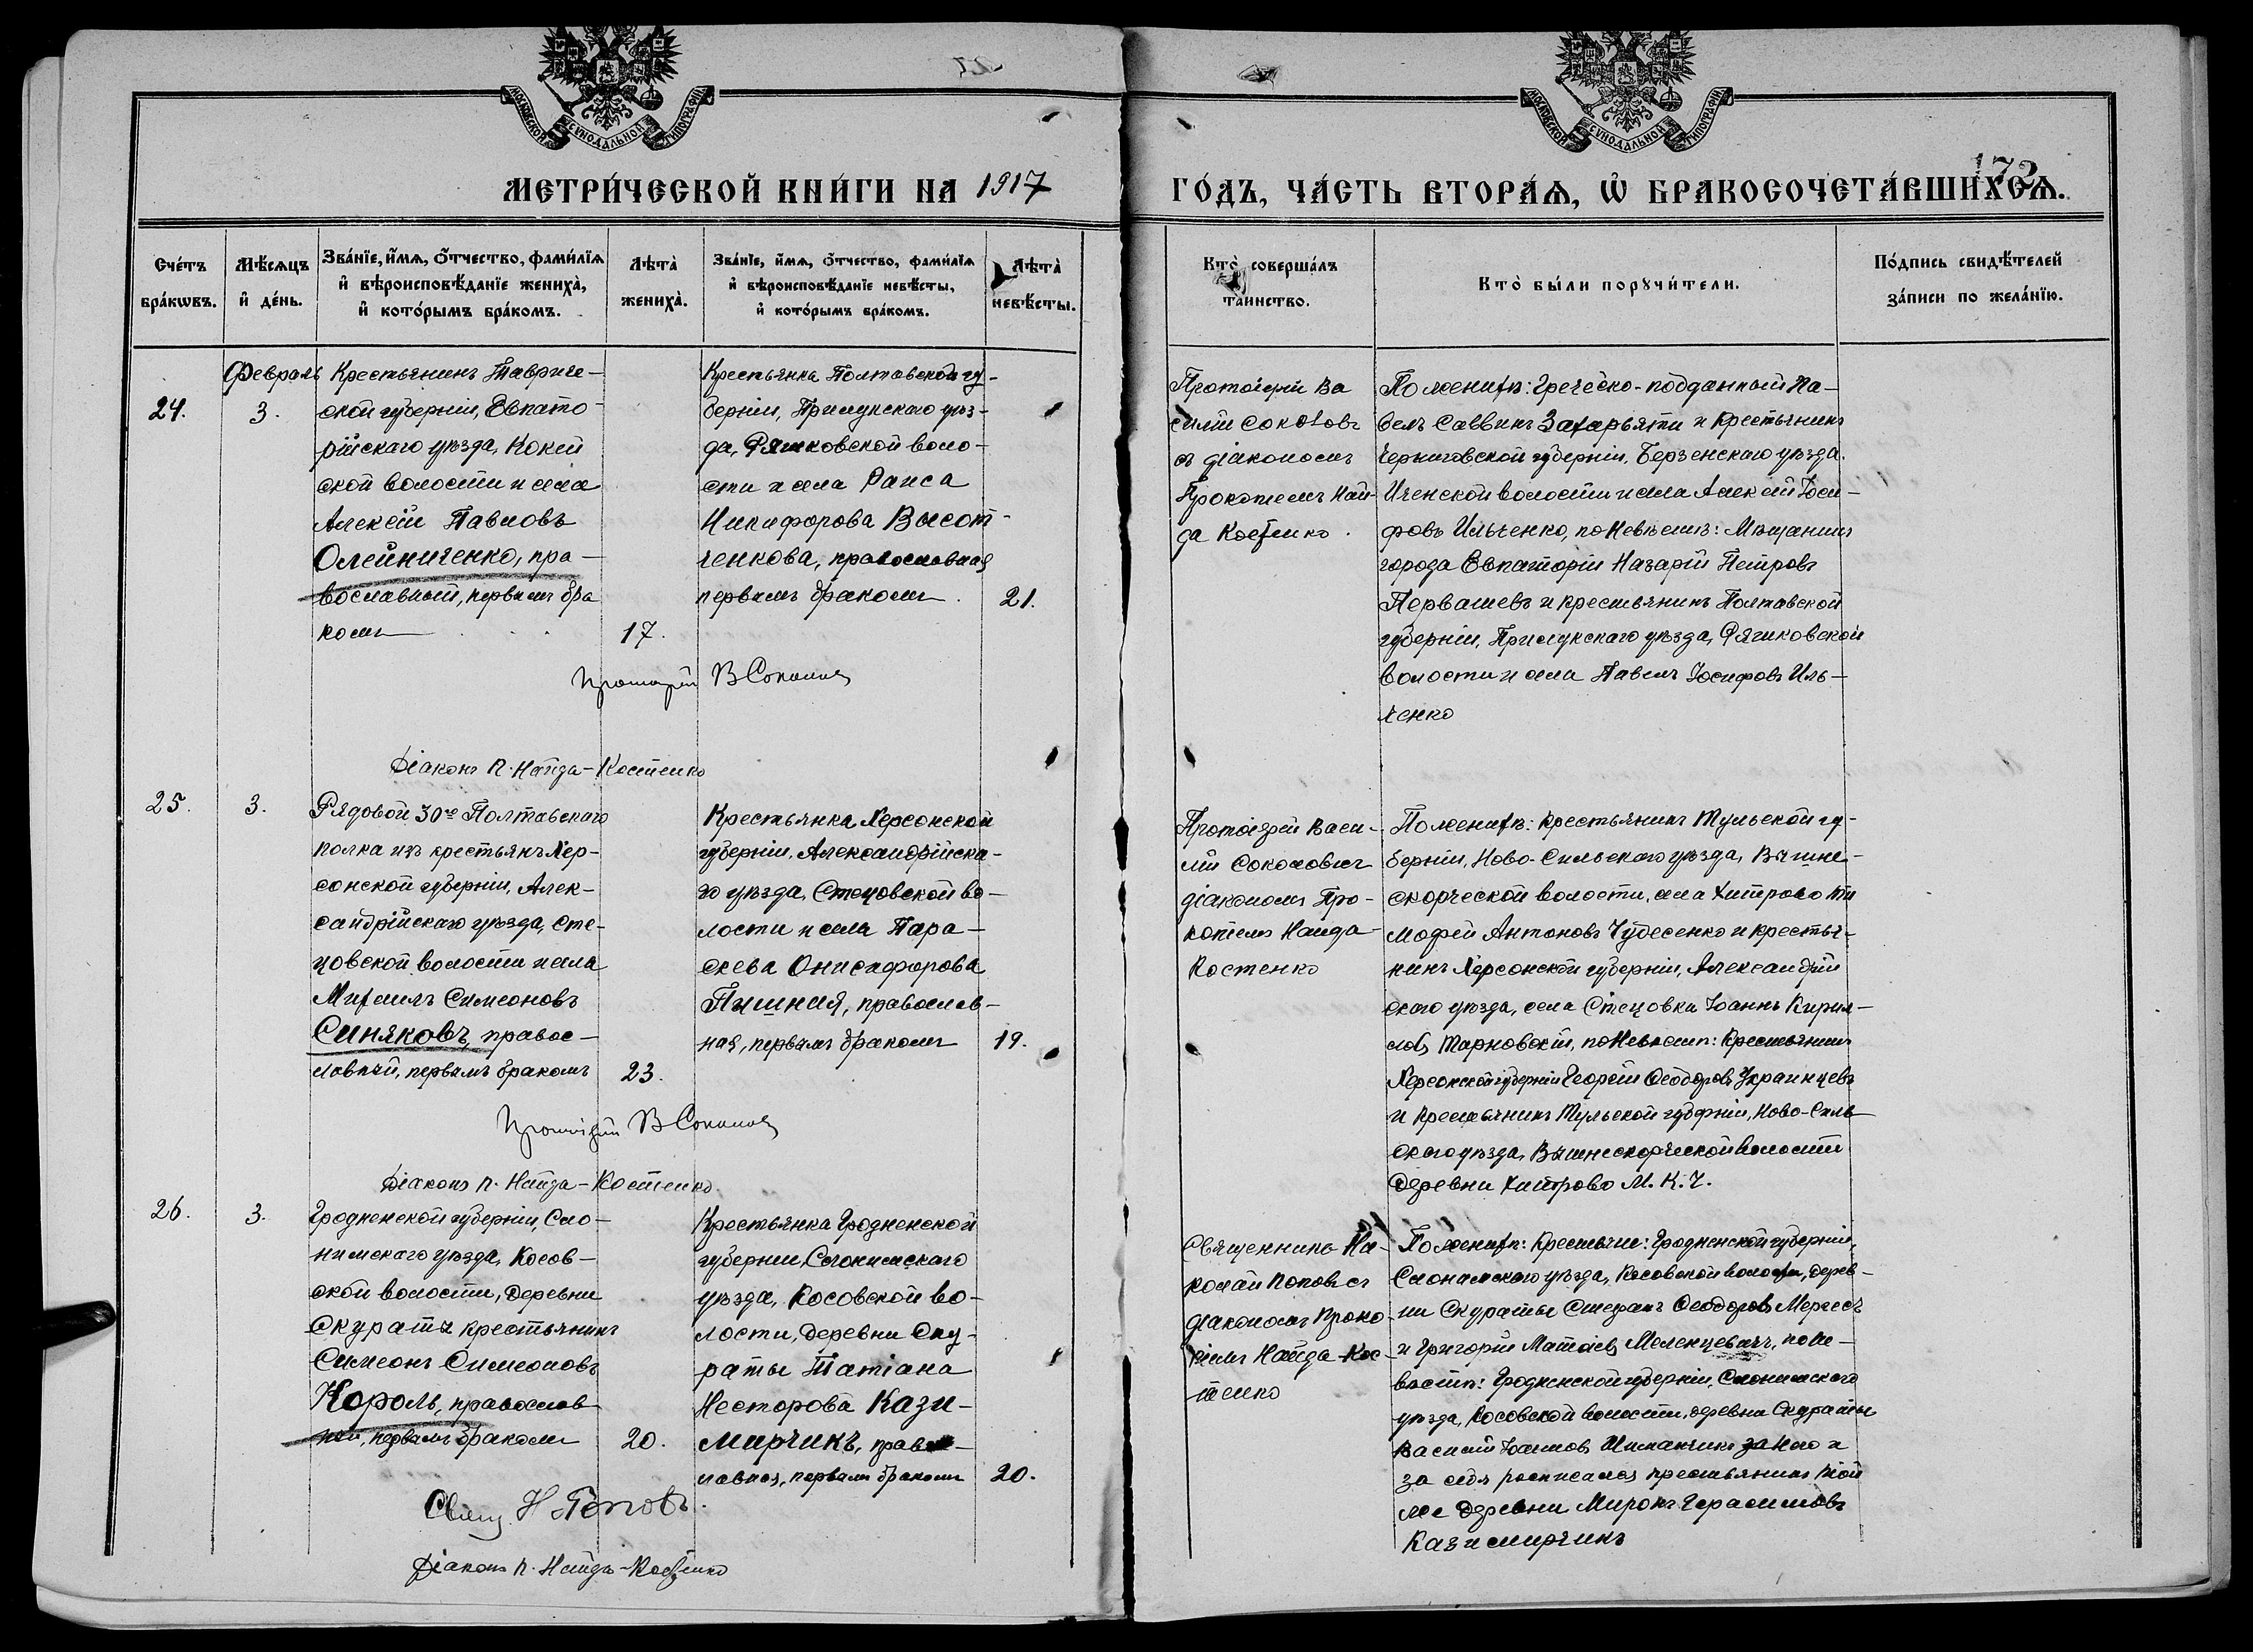 МОСКОВСКОЙ СѴНОДАЛЬНОЙ ТИПОГРАФІИ
МОСКОВСКОЙ СѴНОДАЛЬНОЙ ТИПОГРАФІИ
172
МЕТРИ́ЧЕСКОЙ КНИ́ГИ НА 1917
ГО́ДЪ, ЧА́СТЬ ВТОРА́Ѧ, Ѡ҆ БРАКОСОЧЕТА́ВШИХСѦ.
Сче́тъ
бра́кѡвъ.
Мѣ́сѧцъ
и҆ де́нь.
Зва́нїе, и҆́мѧ, ѻ҆́тчество, фами́лїѧ
и҆ вѣроисповѣ́данїе жениха̀,
и҆ кото́рымъ бра́комъ.
Лѣта̀
жениха̀.
Зва́нїе, и҆́мѧ, ѻ҆́тчество, фами́лїѧ
и҆ вѣроисповѣ́данїе невѣ́сты,
и҆ кото́рымъ бра́комъ.
Лѣта̀
невѣ́сты.
Кто̀ соверша́лъ
таинство.
Кто̀ бы́ли порꙋчи́тели.
По́дпись свидѣ́телей
за́писи по жела́нїю.
24.
Февраль
3.
Крестьянинъ Тавриче-
ской губерніи, Евпато-
рійскаго уѣзда, Кокей
ской волости и села
Алексѣй Павловъ
Олейниченко, пра-
вославный, первымъ бра
комъ
17.
Крестьянка Полтавской гу-
берніи, Прилукскаго уѣз-
да, Ряшковской воло-
сти и села Раиса
Никифорова Высот-
ченкова, православная
первымъ бракомъ.
21.
Протоіерей Ва
силій Соколовъ
съ діакономъ
Прокопіемъ Най-
да Костенко.
По женихѣ: Греческо-подданный Па-
велъ Саввинъ Захарьяти и крестьянинъ
Черниговской губерніи, Берзенскаго уѣзда.
Иченской волости и села Алексѣй Іоси-
фовъ Ильченко, по невѣстѣ: Мѣщанинъ
города Евпаторіи Назарій Петровъ
Первашевъ и крестьянинъ Полтавской
губерніи, Прилукскаго уѣзда, Ряшковской
волости и села Павелъ Іосифовъ Иль-
ченко
Протоіерей В Соколовъ
Діаконъ П. Найда-Костенко
25.
3.
Рядовой 30го Полтавскаго
полка изъ крестьянъ Хер-
сонской губерніи, Алек-
сандрійскаго уѣзда, Сте-
цовской волости и села
Михаилъ Симеоновъ
Синяковъ, правос-
лавный, первымъ бракомъ
23.
Крестьянка Херсонской
губерніи, Александрійска-
го уѣзда, Стецовской во-
лости и села Пара-
скева Онисифорова
Пишная, православ-
ная, первымъ бракомъ
19.
Протоіерей Васи-
лій Соколовъ съ
діакономъ Про-
копіемъ Найда-
Костенко
По женихѣ: крестьянинъ Тульской гу-
берніи, Ново-Сильскаго уѣзда, Вышне-
скорческой волости, села Хитрово Ти
мофей Антоновъ Чудесенко и крестья-
нинъ Херсонской губерніи, Александрій
скаго уѣзда, села Стецовки Іоаннъ Кирил-
ловъ Тарновскій, по невѣстѣ: Крестьянинъ
Херсонской губерніи Георгій Ѳеодоровъ Украинцевъ
и крестьянинъ Тульской губерніи, Ново-Силь
скаго уѣзда, Вышнескорческой волости
деревни Хитрово М. К. Ч.
Протоіерей В Соколовъ
Діаконъ П. Найда-Костенко.
26.
3.
Гродненской губерніи, Сло-
нимскаго уѣзда, Косов-
ской волости, деревни
Скураты крестьянинъ
Симеонъ Симеоновъ
Король, православ
ный, первымъ бракомъ
20.
Крестьянка Гродненской
губерніи, Слонимскаго
уѣзда, Косовской во-
лости, деревни Ску-
раты Татіана
Несторова Кази-
мирчикъ, правос-
лавная, первымъ бракомъ
20.
Священникъ Ни-
колай Поповъ съ
діакономъ Проко-
піемъ Найда-Кос-
тенко
По женихѣ: Крестьяне: Гродненской губерніи,
Слонимскаго уѣзда, Косовской волости, дерев-
ни Скураты Стефанъ Ѳеодоровъ Мергесъ
и Григорій Матѳіевъ Меленцевичъ, по не-
вѣстѣ: Гродненской губерніи, Слонимскаго
уѣзда, Косовской волости, деревни Скураты
Василій Іоанновъ за него и
за себя росписался крестьянинъ той
же деревни Миронъ Герасимовъ
Казимирчикъ
Свящ. Н. Поповъ.
Діаконъ П. Найда-Костенко